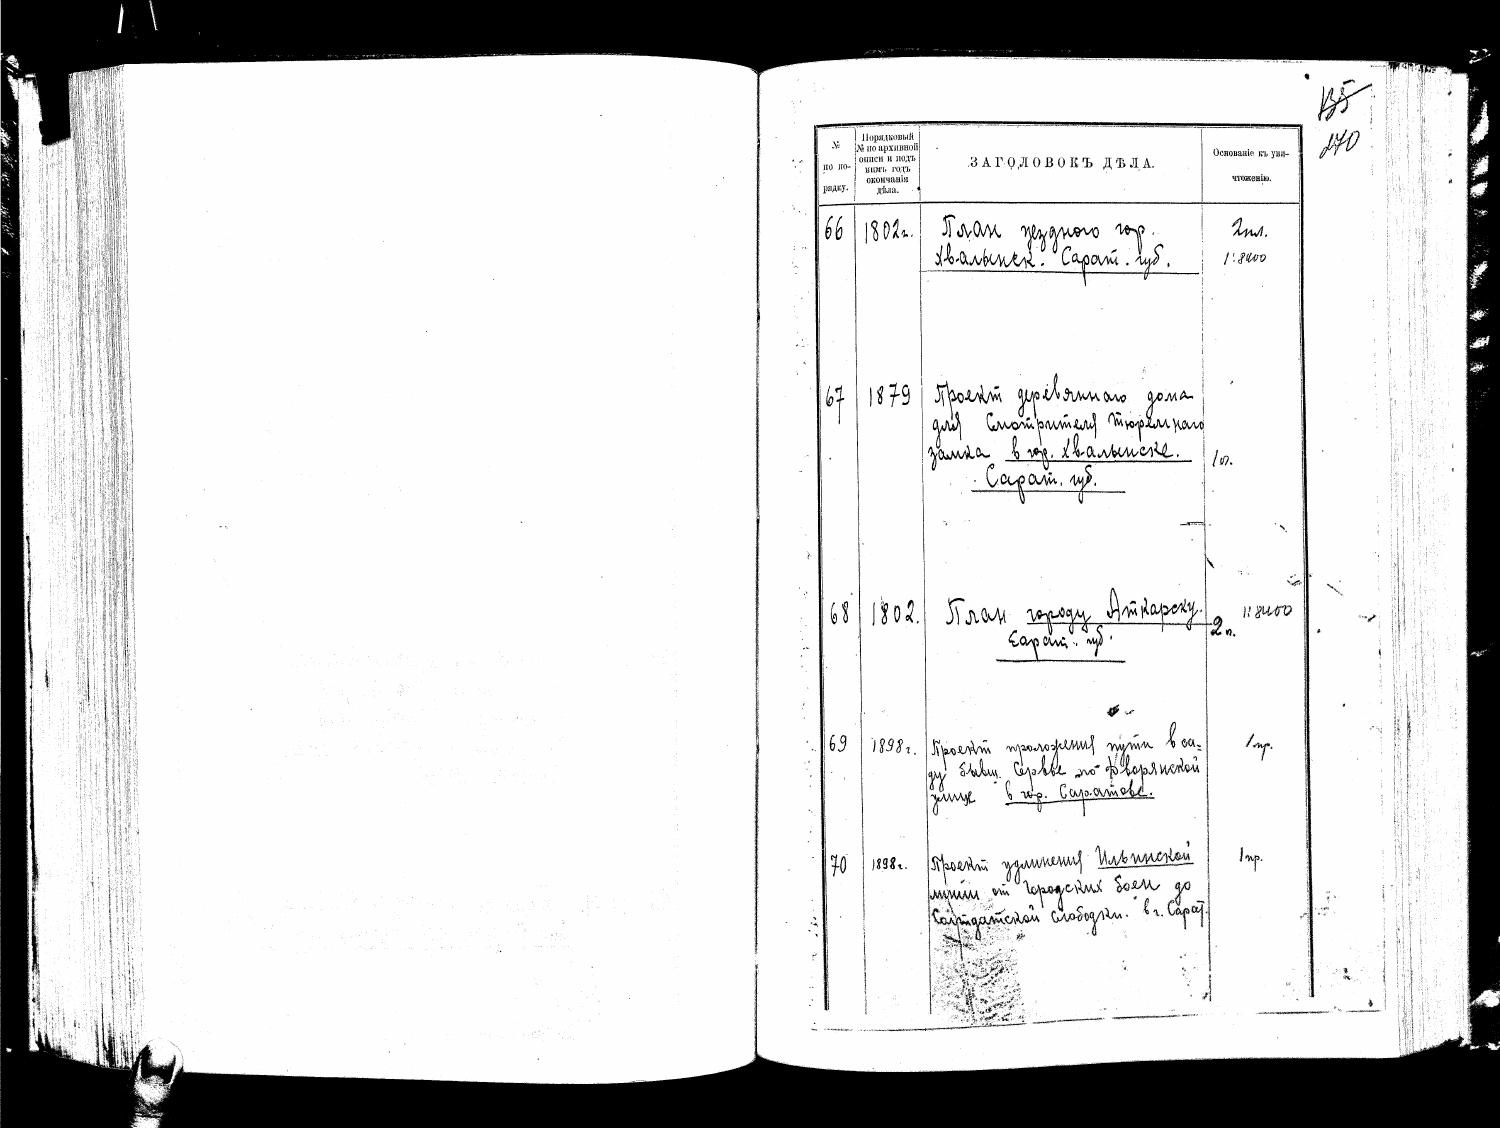 135
270
№ по по-
рядку.
Порядковый
№ по архивной
описи и подъ
нимъ годъ
окончанія
дѣла.
ЗАГОЛОВОКЪ ДѢЛА.
Основаніе къ уни-
чтоженію.
66 1802г. План уездного гор. 2пл.
Хвалынск. Сарат. губ. 1:8400
67 1879 Проект деревяннаго дома
для Смотрителя тюремнаго
замка в гор. Хвалынске. 1л.
Сарат. губ.
68 1802. План городу Аткарску. 2л. 1:8400
Сарат. губ.
69 1898г. Проект проложения пути в са- 1пр.
ду бывш. Сервье по Дворянской
улице в гор. Саратове.
70 1898г. Проект удлинения Ильинской 1пр.
линии от Городских боен до
Солдатской слободки. в г. Сарат.